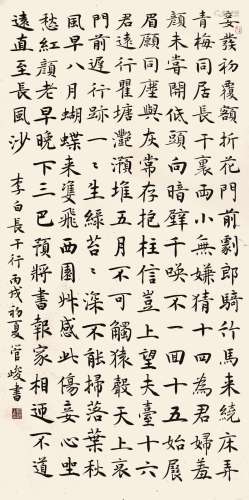 妾發初覆額折花門前劇郎騎竹馬來繞床弄
青梅同居長干裏兩小無嫌猜十四為君婦羞
顏未嘗開低頭向暗壁千喚不一回十五始展
眉願同塵與灰常存抱柱信豈上望夫臺十六
君遠行瞿塘灧澦堆五月不可觸猿聲天上哀
門前遲行跡一〻生綠苔〻深不能掃落葉秋
風早八月蝴蝶來雙飛西園艸感此傷妾心坐
愁紅顏老早晚下三巴預將書報家相迎不道
遠直至長風沙 李白長干行丙戌初夏管峻書